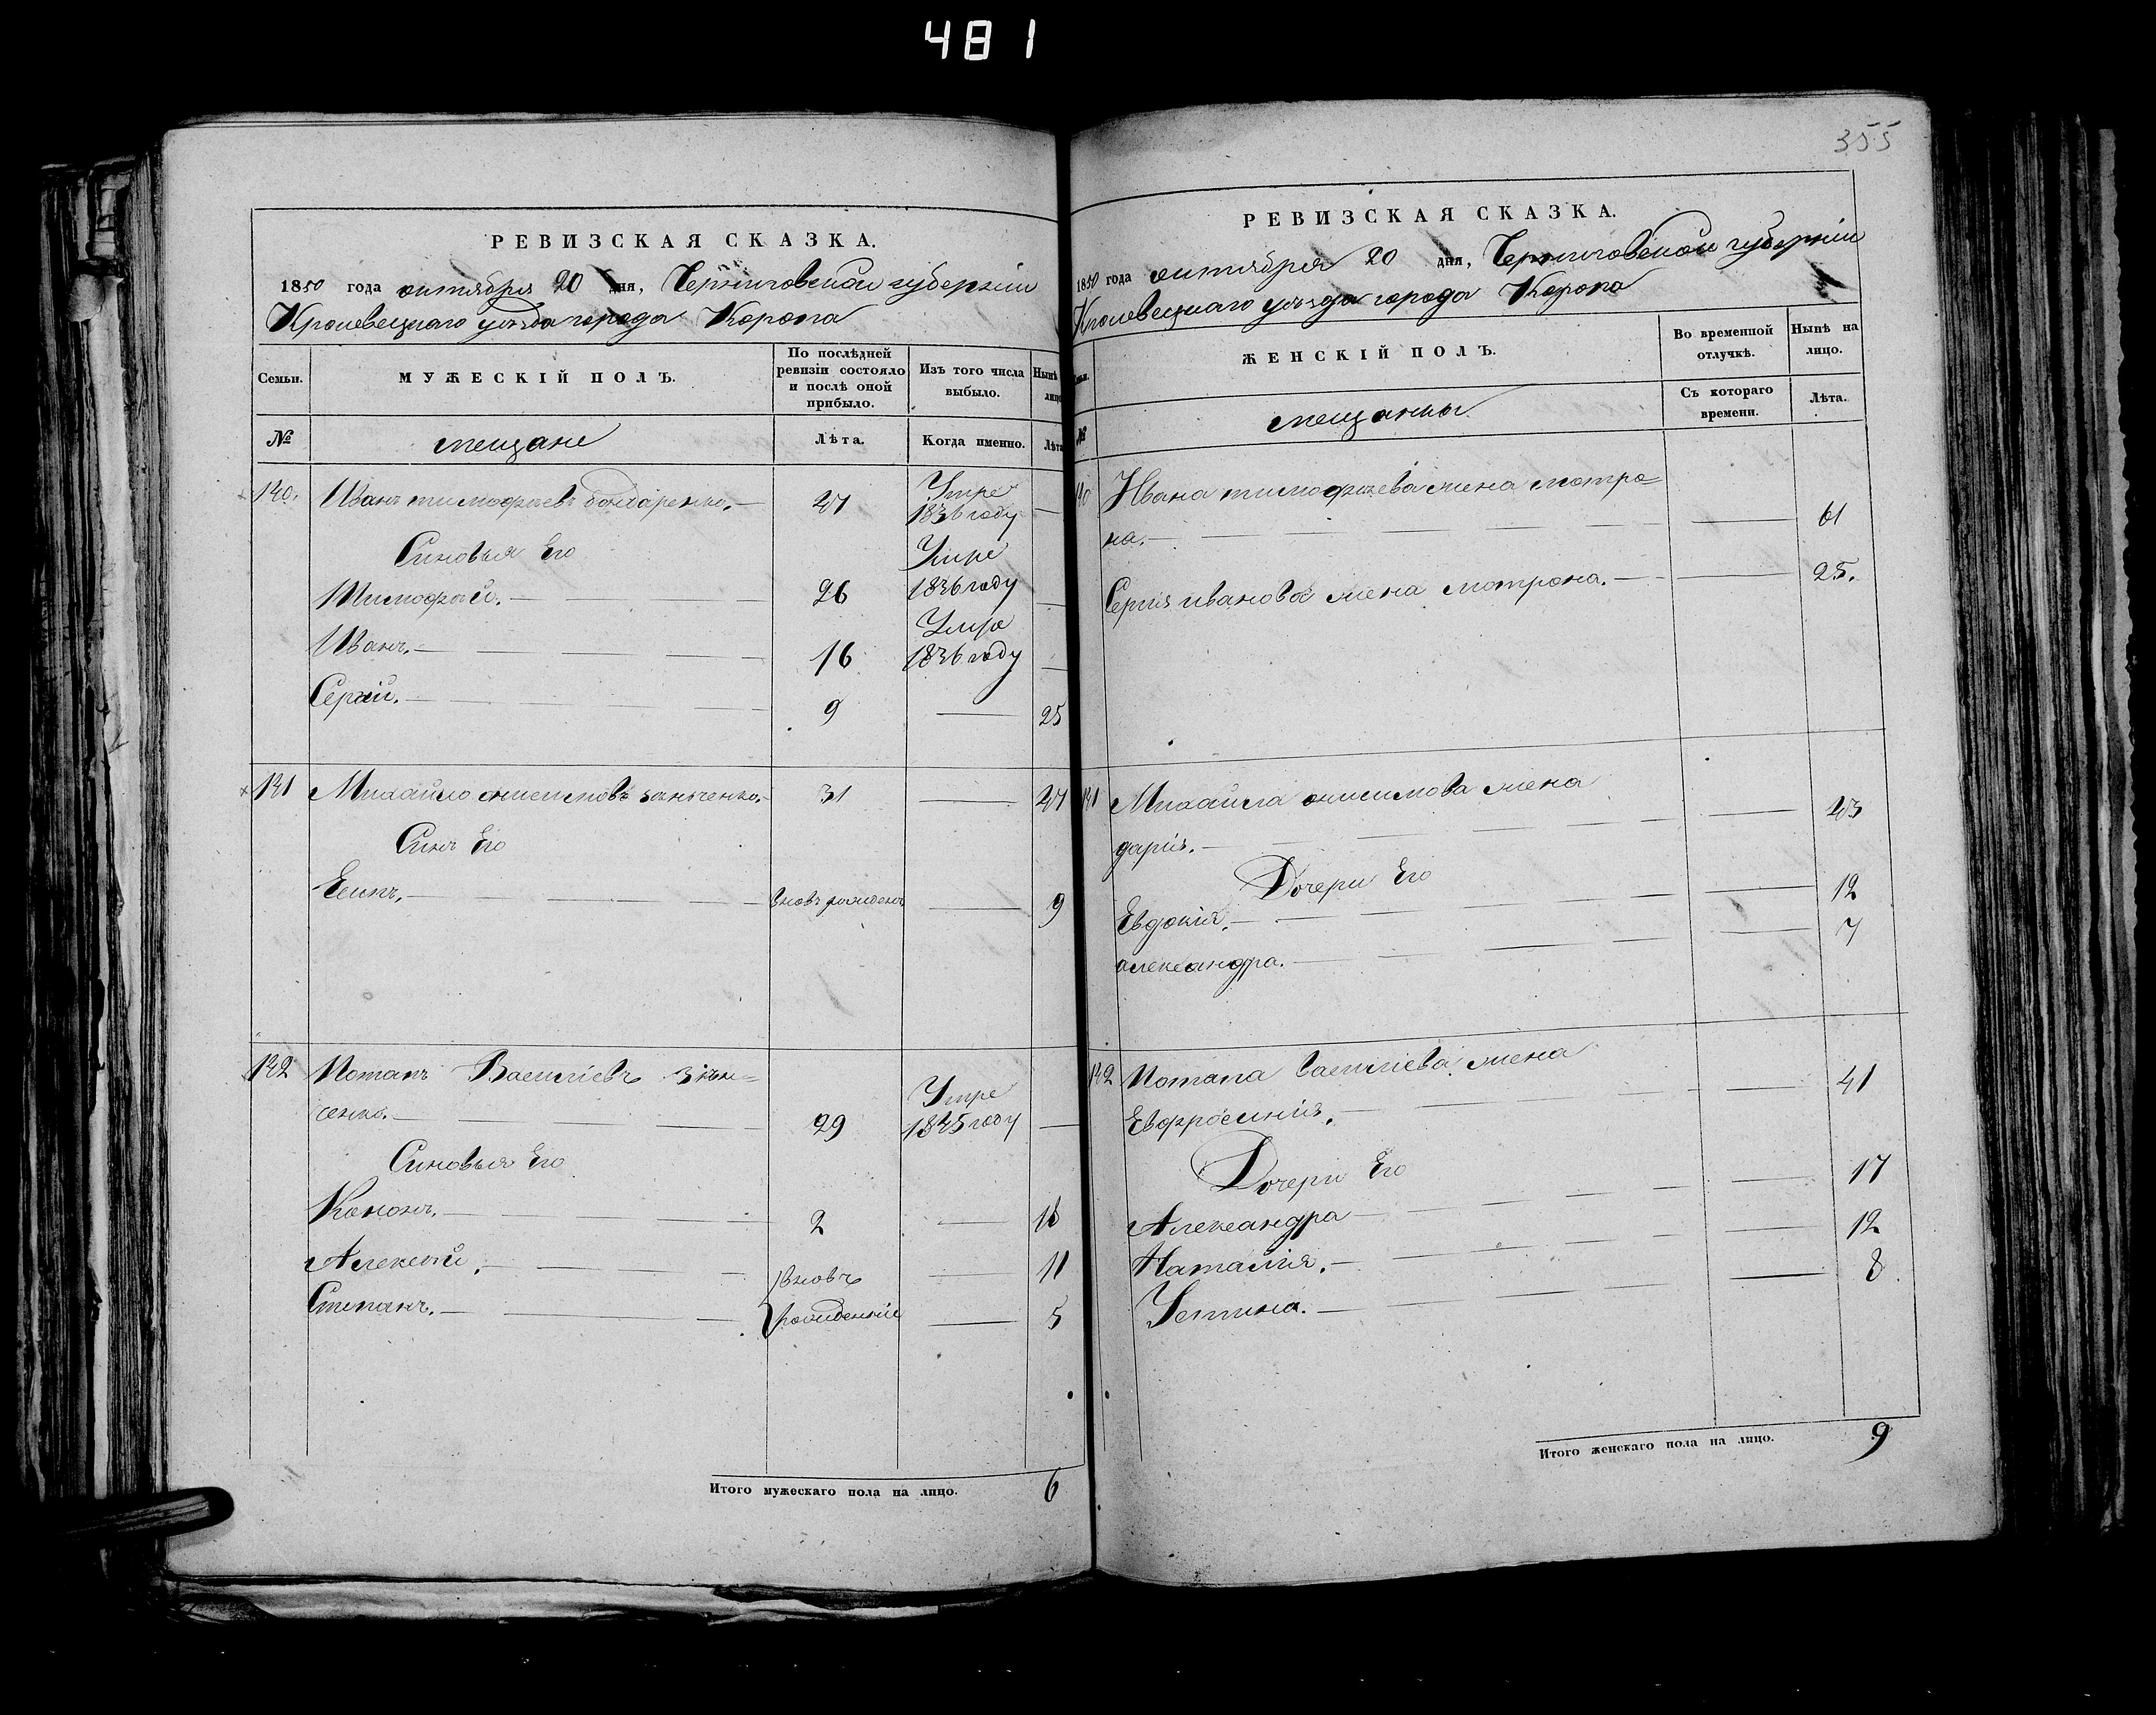 481
РЕВИЗСКАЯ СКАЗКА.
1850 года октября 20 дня, Черниговской губерніи
Кролевецкаго уѣзда города Коропа
Семьи.
МУЖЕСКІЙ ПОЛЪ.
По послѣдней ревизіи состояло и послѣ оной прибыло.
Изъ того числа выбыло.
Нынѣ
лицо
№
мещане
Лѣта.
Когда именно.
Лѣта
140. Иванъ тимофѣевъ бондаренко. — 47 Умре 1836 году —
Синовья Его
Тимофѣй. — 26 Умре 1836 году —
Иванъ. — 16 Умре 1836 году —
Сергѣй. — 9 — 25
141 Михайло онисимовъ — 31 — 47
Синъ Его
Есипъ. — вновь рожденъ — 9
142 Потапъ Василіевъ
ченко. — 29 Умре 1845 году —
Синовья Его
Кононъ. — 2 — 18
Алексѣй. — вновь — 11
Степанъ. — рожденніе — 5
Итого мужескаго пола на лицо. 6
355
РЕВИЗСКАЯ СКАЗКА.
1850 года октября 20 дня, Черниговской губерніи
Кролевецкаго уѣзда города Коропа
ЖЕНСКІЙ ПОЛЪ.
Во временной отлучкѣ.
Нынѣ на лицо.
№
мещанки
Съ котораго времени.
Лѣта.
140 Ивана тимофѣева жена мотро=
на. — — 61
Сергія иванова жена мотрона. — — 25.
141 Михайла онисимова жена
дарія. — — 43
Дочери Его
Евдокія. — — 12
александра. — — 7
142 Потапа василіева жена
Евфросинія. — — 41
Дочери Его
Александра — — 17
Наталія. — — 12
Устина. — — 8
Итого женскаго пола на лицо. 9